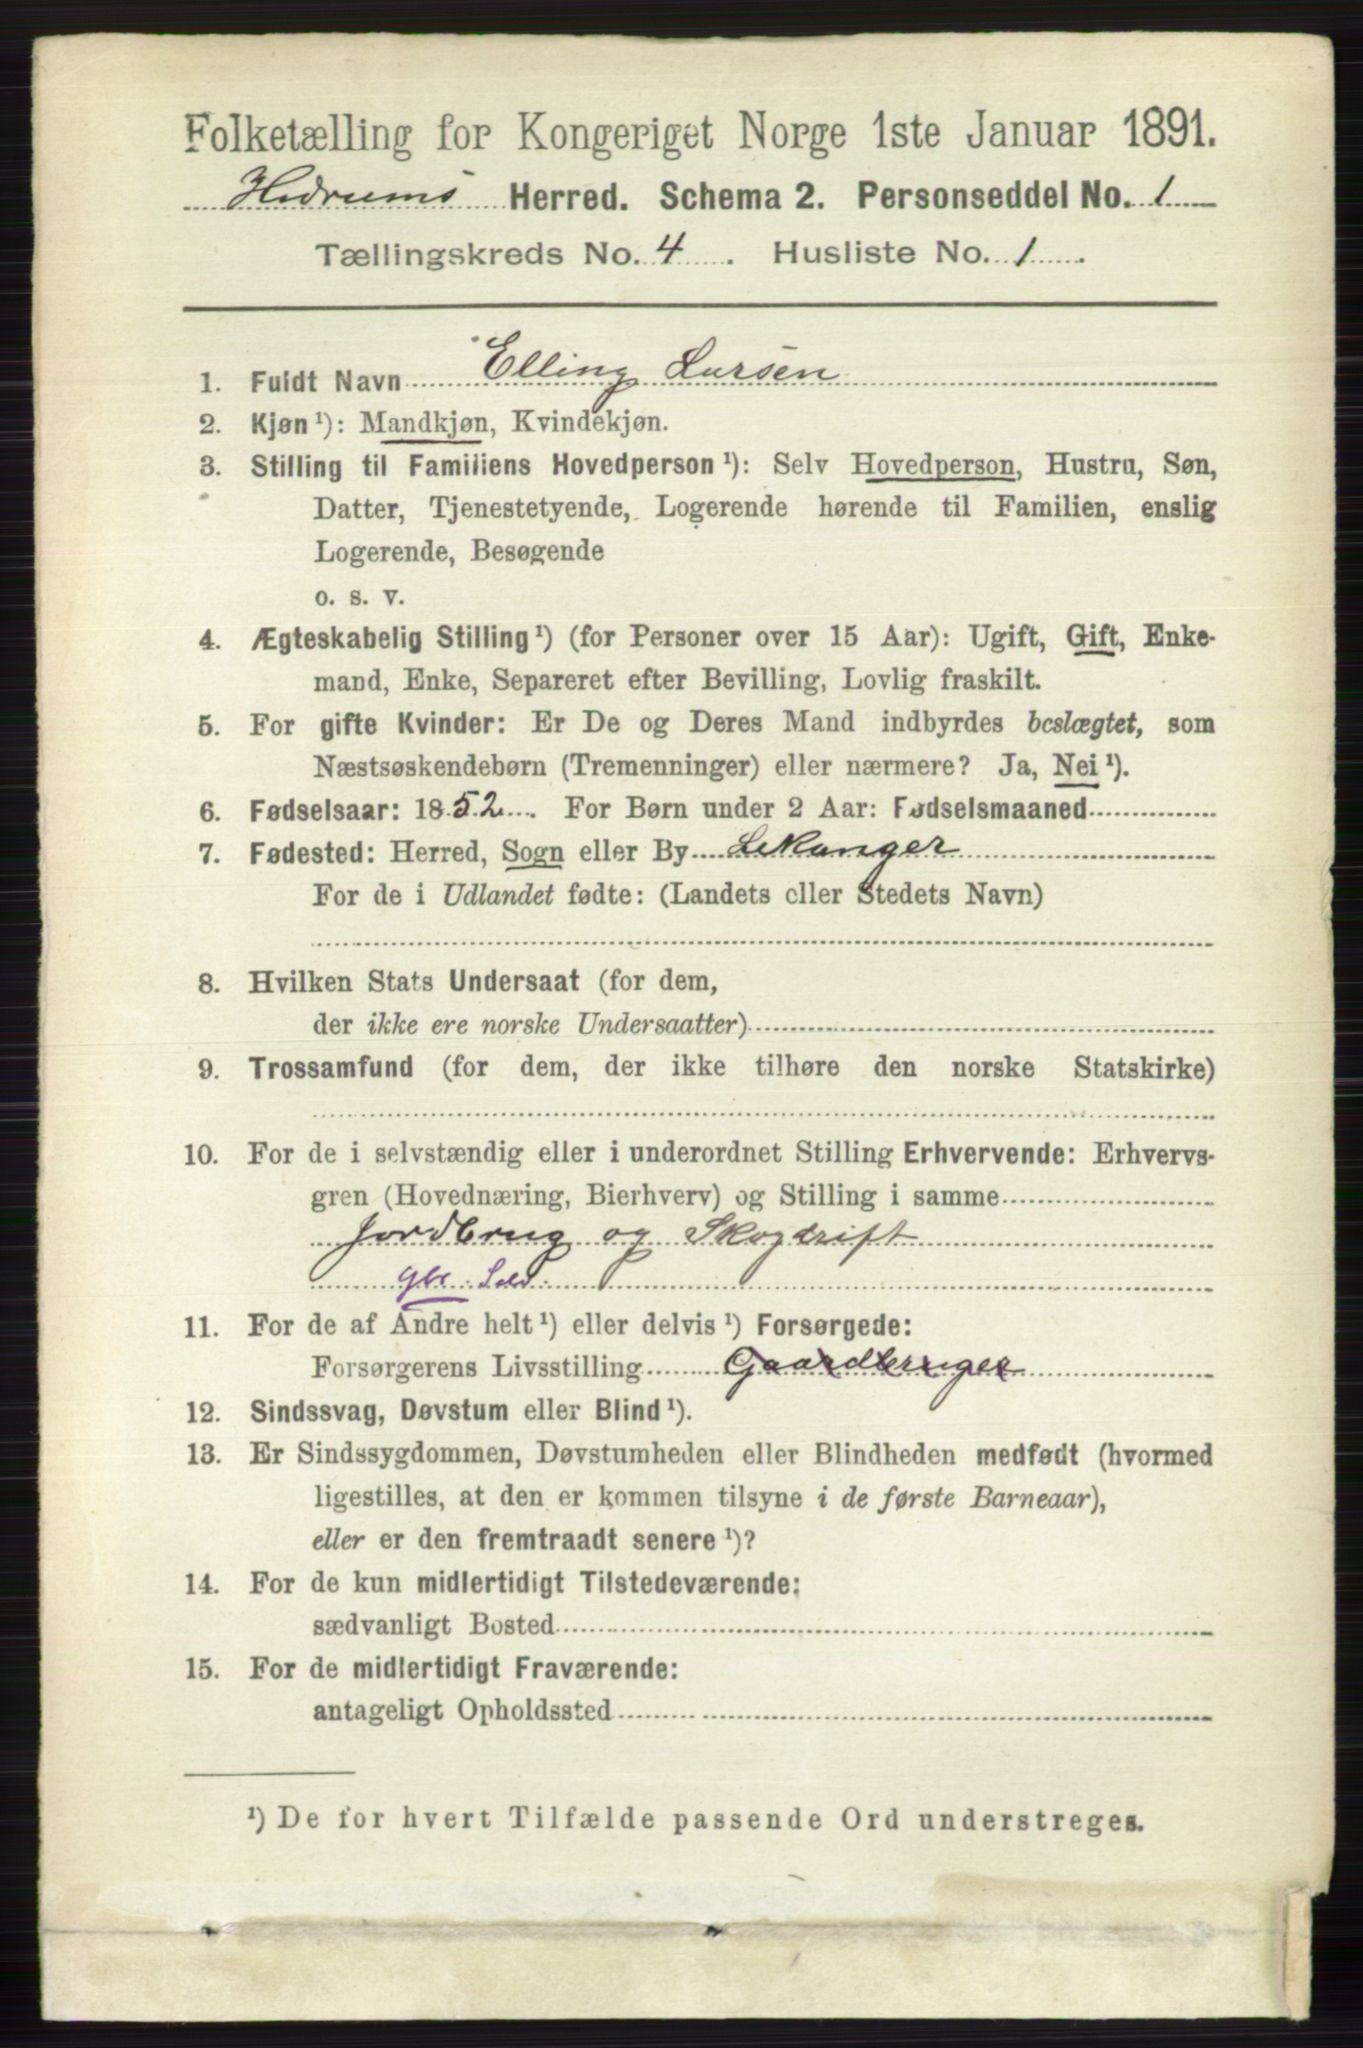 Folketælling for Kongeriget Norge 1ste Januar 1891.
Hedrums Herred. Schema 2. Personseddel No. 1
Tællingskreds No. 4. Husliste No. 1.
1. Fuldt Navn Elling Larsen
2. Kjøn ¹): Mandkjøn, Kvindekjøn.
3. Stilling til Familiens Hovedperson ¹): Selv Hovedperson, Hustru, Søn,
Datter, Tjenestetyende, Logerende hørende til Familien, enslig
Logerende, Besøgende
o. s. v.
4. Ægteskabelig Stilling ¹) (for Personer over 15 Aar): Ugift, Gift, Enke-
mand, Enke, Separeret efter Bevilling, Lovlig fraskilt.
5. For gifte Kvinder: Er De og Deres Mand indbyrdes beslægtet, som
Næstsøskendebørn (Tremenninger) eller nærmere? Ja, Nei ¹).
6. Fødselsaar: 1852. For Børn under 2 Aar: Fødselsmaaned
7. Fødested: Herred, Sogn eller By Lekanger
For de i Udlandet fødte: (Landets eller Stedets Navn)
8. Hvilken Stats Undersaat (for dem,
der ikke ere norske Undersaatter)
9. Trossamfund (for dem, der ikke tilhøre den norske Statskirke)
10. For de i selvstændig eller i underordnet Stilling Erhvervende: Erhvervs-
gren (Hovednæring, Bierhverv) og Stilling i samme
Jordbrug og Skogdrift
gbr. Selv.
11. For de af Andre helt ¹) eller delvis ¹) Forsørgede:
Forsørgerens Livsstilling Gaardbruger
12. Sindssvag, Døvstum eller Blind ¹).
13. Er Sindssygdommen, Døvstumheden eller Blindheden medfødt (hvormed
ligestilles, at den er kommen tilsyne i de første Barneaar),
eller er den fremtraadt senere ¹)?
14. For de kun midlertidigt Tilstedeværende:
sædvanligt Bosted
15. For de midlertidigt Fraværende:
antageligt Opholdssted
¹) De for hvert Tilfælde passende Ord understreges.